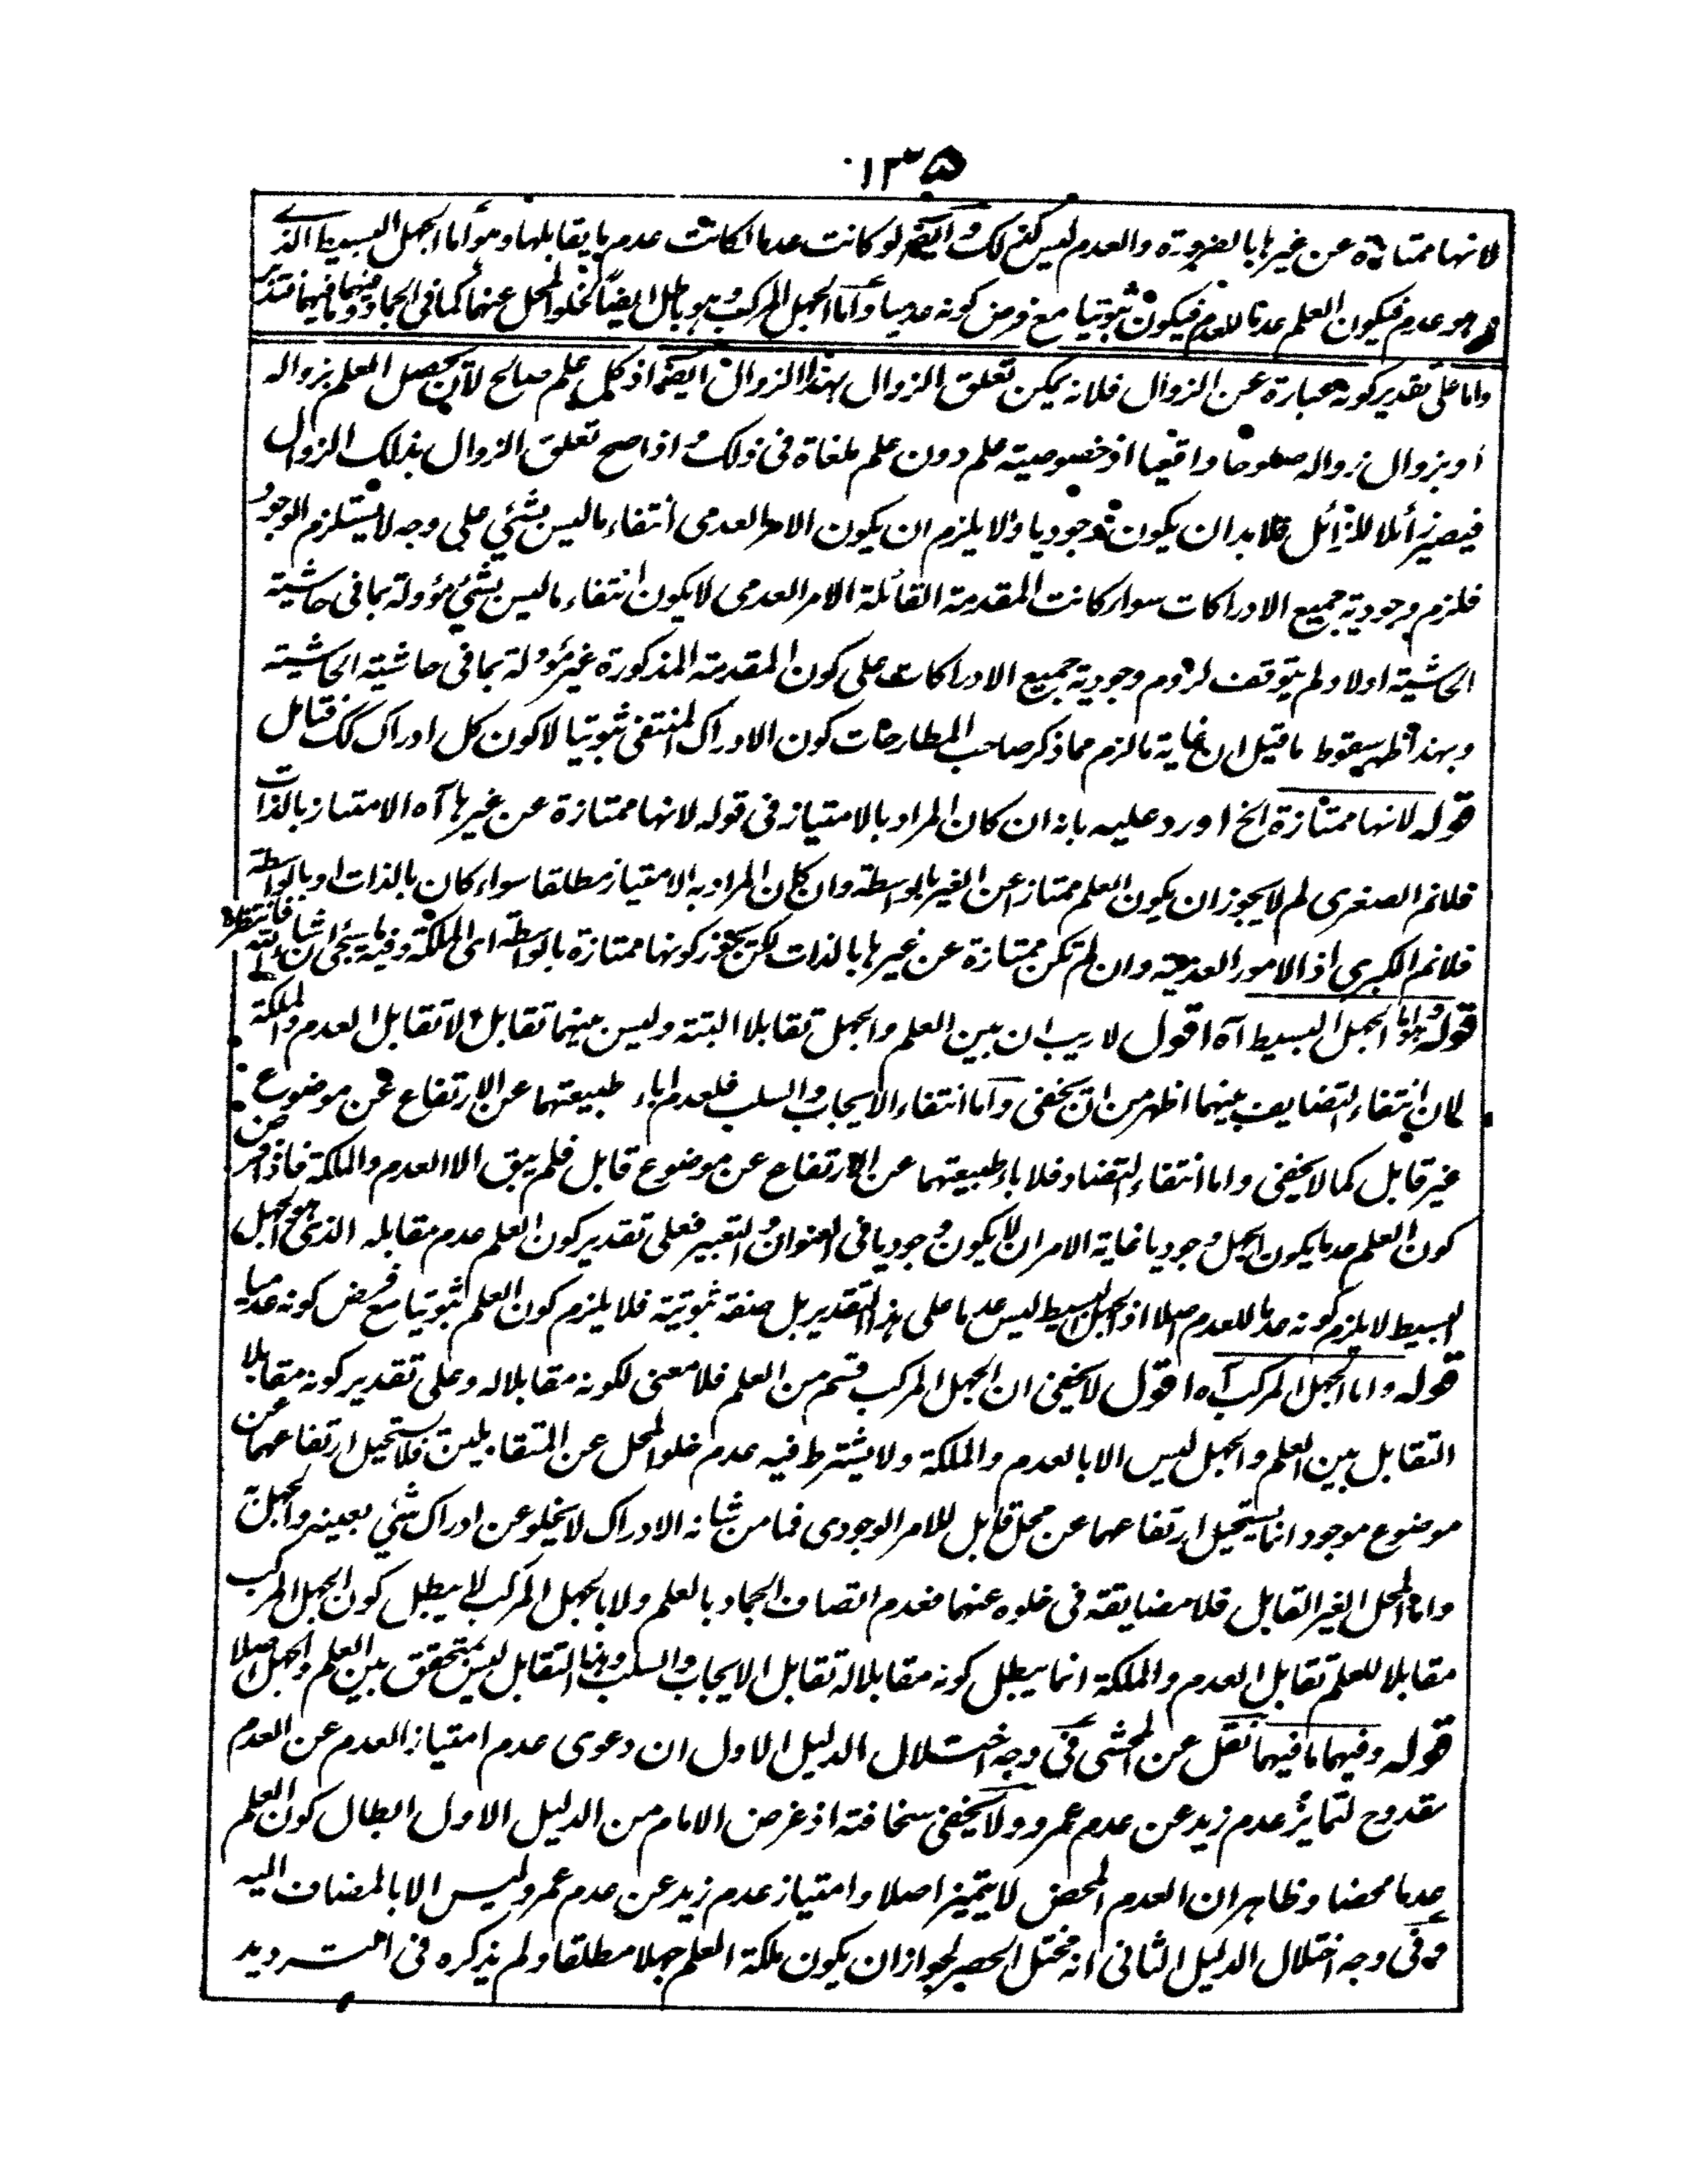 ۱۳۵
لانها ممتازة عن غيرها بالضرورة والعدم ليس كذلك وايضا لو كانت عدما لكانت عدم ما يقابلها وهو اما الجهل البسيط الذے
هو عدم فيكون العلم عدما للعدم فيكون ثبوتيا مع فرض كونه عدميا واما الجهل المركب وهو باطل ايضا لخلو المحل عنهما كما في الجماد وفيهما ما فيهما فتدبر
واما على تقدير كونه عبارة عن الزوال فلانه يمكن تعلق الزوال بهذا الزوال ايضا اذ كل علم صالح لان يحصل العلم بزواله
او بزوال زواله صلوحا واقعيا اذ خصوصية علم دون علم ملغاة فى ذلك واذا صح تعلق الزوال بذلك الزوال
فيصير زائلا للزائل فلا بد ان يكون وجوديا والا يلزم ان يكون الامر العدمى انتفاء ما ليس بشئي على وجه لا يستلزم الوجود
فلزم وجودية جميع الادراكات سواء كانت المقدمة القائلة الامر العدمى لا يكون انتفاء ما ليس بشئي مؤولة بما فى حاشية
الحاشية اولا ولم يتوقف لزوم وجودية جميع الادراكات على كون المقدمة المذكورة غير مؤولة بما فى حاشية الحاشية
وبهذا ظهر سقوط ما قيل ان غاية ما لزم مما ذكر صاحب المطارحات كون الادراك المنتفى ثبوتيا لا كون كل ادراك كك فتامل
قوله لانها ممتازة الخ اورد عليه بانه ان كان المراد بالامتياز فى قوله لانها ممتازة عن غيرها آه الامتياز بالذات
فلانم الصغرى لم لا يجوز ان يكون العلم ممتازا عن الغير بالواسطة وان كان المراد به الامتياز مطلقا سواء كان بالذات او بالواسطة
فلانم الكبرى اذ الامور العدمية وان لم تكن ممتازة عن غيرها بالذات لكن يجوز كونها ممتازة بالواسطة اى الملكة وفيه ما سيجئ ان شاء الله فانتظره
قوله وهو اما الجهل البسيط آه اقول لا ريب ان بين العلم والجهل تقابلا البتة وليس بينهما تقابل الا تقابل العدم والملكة
لان انتفاء التضايف بينهما اظهر من ان يخفى واما انتفاء الايجاب والسلب فلعدم اباء طبيعتهما عن الارتفاع عن موضوع
غير قابل كما لا يخفى واما انتفاء التضاد فلاباء طبيعتهما عن الارتفاع عن موضوع قابل فلم يبق الا العدم والملكة فاذا فرض
كون العلم عدما يكون الجهل وجوديا غاية الامر ان لا يكون وجوديا فى العنوان والتعبير فعلى تقدير كون العلم عدم مقابله الذى هو الجهل
البسيط لا يلزم كونه عدما للعدم اصلا اذ الجهل البسيط ليس عدما على هذا التقدير بل صفة ثبوتية فلا يلزم كون العلم ثبوتيا مع فرض كونه عدميا
قوله واما الجهل المركب آه اقول لا يخفى ان الجهل المركب قسم من العلم فلا معنى لكونه مقابلا له وعلى تقدير كونه مقابلا
التقابل بين العلم والجهل ليس الا بالعدم والملكة ولا يشترط فيه عدم خلو المحل عن المتقابلين فلا يستحيل ارتفاعهما عن
موضوع موجود انما يستحيل ارتفاعهما عن محل قابل للامر الوجودى فما من شانه الادراك لا يخلو عن ادراك شئي بعينه والجهل به
واما المحل الغير القابل فلا مضايقة فى خلوه عنهما فعدم اتصاف الجماد بالعلم ولا بالجهل المركب لا يبطل كون الجهل المركب
مقابلا للعلم تقابل العدم والملكة انما يبطل كونه مقابلا له تقابل الايجاب والسلب وهذا التقابل ليس يتحقق بين العلم والجهل اصلا
قوله وفيهما ما فيهما نقل عن المحشى فى وجه اختلال الدليل الاول ان دعوى عدم امتياز العدم عن العدم
مقدوح لتمايز عدم زيد عن عدم عمرو ولا يخفى سخافته اذ غرض الامام من الدليل الاول ابطال كون العلم
عدما محضا وظاهر ان العدم المحض لا يتميز اصلا وامتياز عدم زيد عن عدم عمرو ليس الا بالمضاف اليه
وفى وجه اختلال الدليل الثانى انه مختل الحصر لجواز ان يكون ملكة العلم جهلا مطلقا ولم يذكره فى الترديد